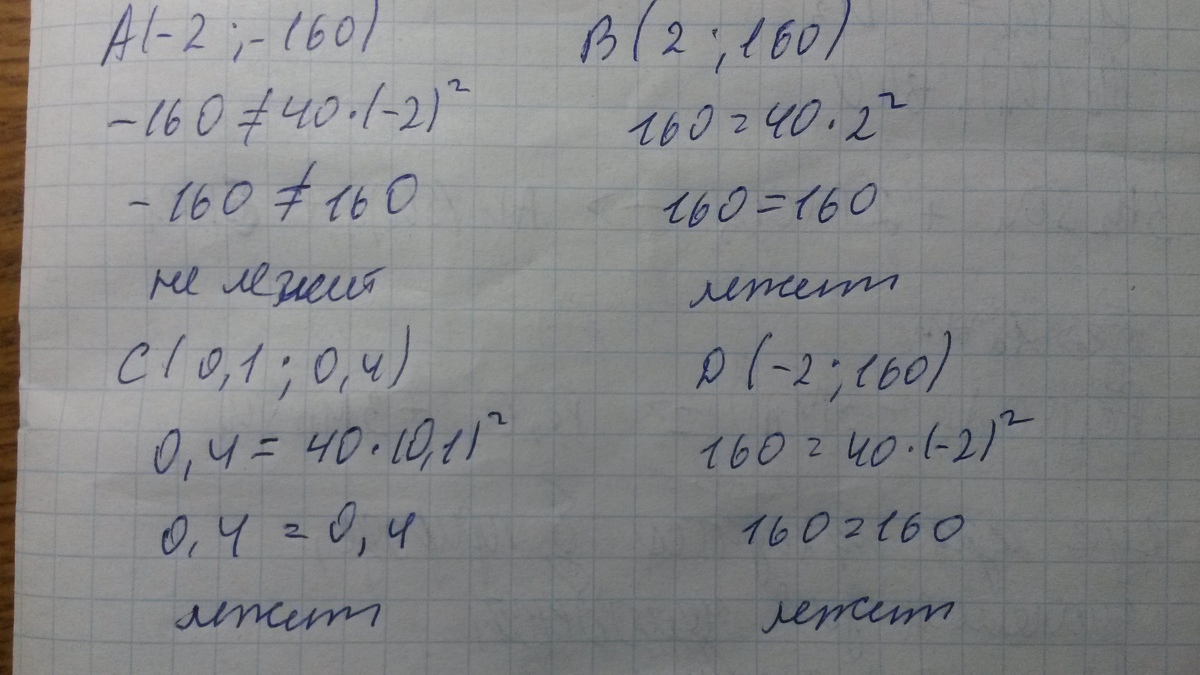 A(-2 ; -160)
-160 ≠ 40·(-2)²
-160 ≠ 160
не лежит
B(2 ; 160)
160 = 40·2²
160 = 160
лежит
C(0,1 ; 0,4)
0,4 = 40·(0,1)²
0,4 = 0,4
лежит
D(-2 ; 160)
160 = 40·(-2)²
160 = 160
лежит